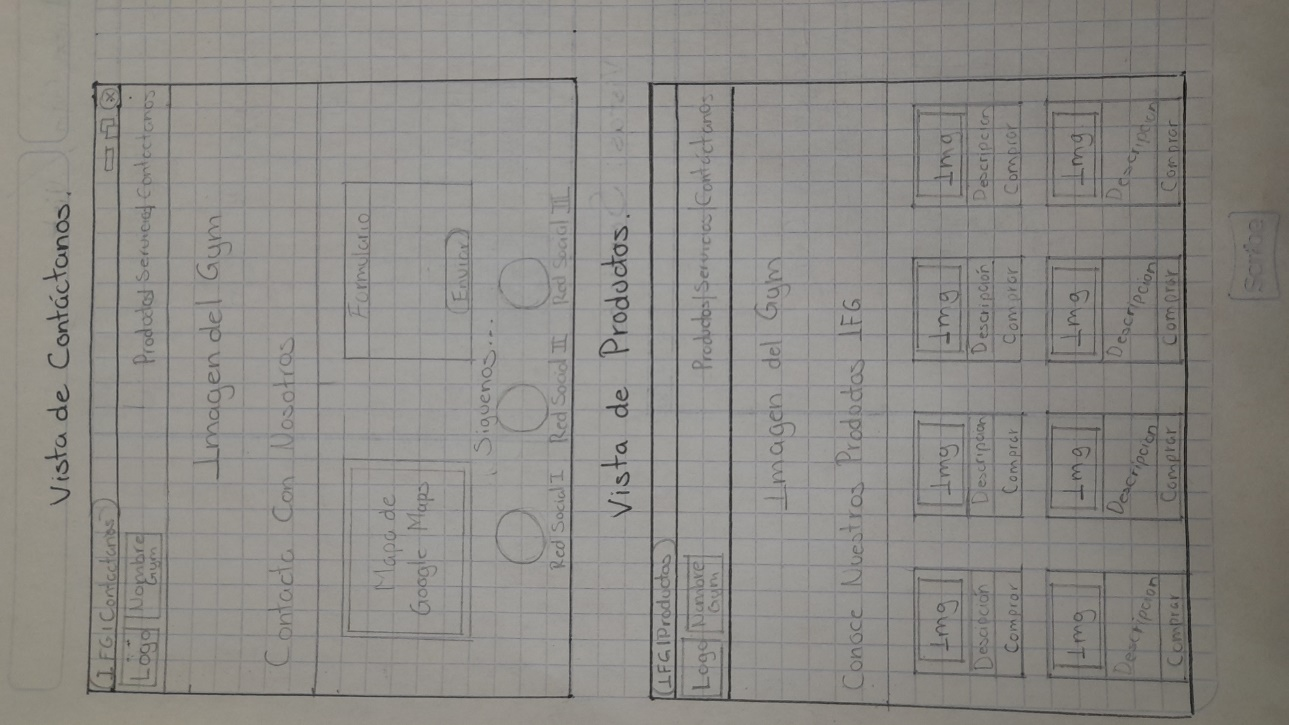 Vista de Contáctanos.
IFG | Contactanos
Logo Nombre Gym Productos| Servicios| Contactanos
Imagen del Gym
Contacta Con Nosotros
Mapa de Google Maps
Formulario
Enviar
Siguenos...
Red Social I Red Social II Red Social III
Vista de Productos.
IFG | Productos
Logo Nombre Gym Productos | Servicios | Contáctanos
Imagen del Gym
Conoce Nuestros Productos IFG
Img Img Img Img
Descripción Descripcion Descripción Descripcion
Comprar Comprar Comprar Comprar
Img Img Img Img
Descripcion Descripcion Descripcion Descripcion
Comprar Comprar Comprar Comprar